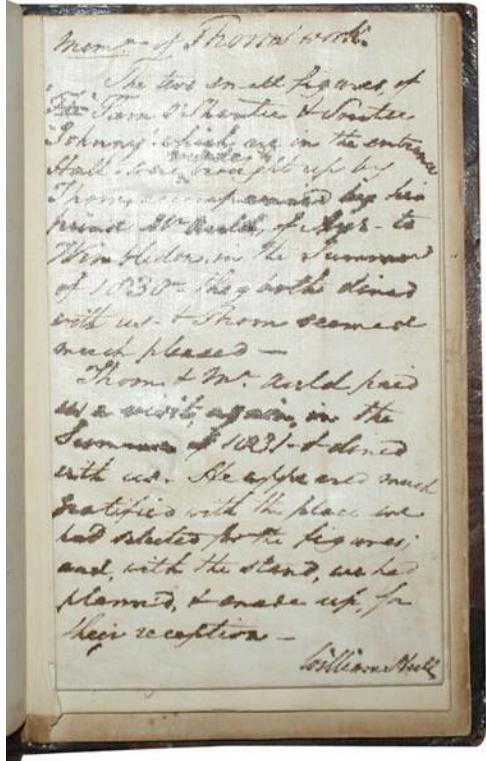 Memo - of Thom's work.
The two small figures, of
Tam O'Shanter & Souter
Johnny which are in the entrance
Hall, were brought up by
Thom, accompanied by his
friend Mr Auld, of Ayr - to
Wimbledon in the Summer
of 1830 - they both dined
with us - & Thom seemed
much pleased —
Thom & Mr. Auld paid
us a visit, again, in the
Summer of 1831 - & dined
with us - He appeared much
gratified with the place we
had selected for the figures;
and, with the stand, we had
planned, & made up, for
their reception —
William